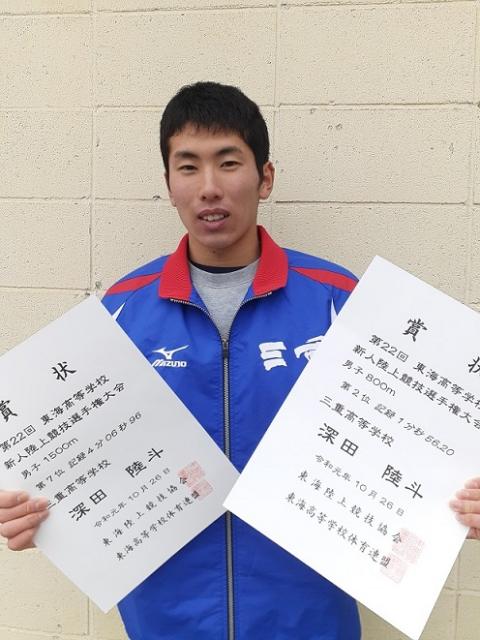 賞状
第22回 東海高等学校
新人陸上競技選手権大会
男子1500m
第7位 記録4分06秒96
三重高等学校
深田 陸斗
令和元年10月26日
東海陸上競技協会
東海高等学校体育連盟
MIZUNO
三重
賞状
第22回 東海高等学校
新人陸上競技選手権大会
男子800m
第2位 記録1分秒56.20
三重高等学校
深田 陸斗
令和元年10月26日
東海陸上競技協会
東海高等学校体育連盟